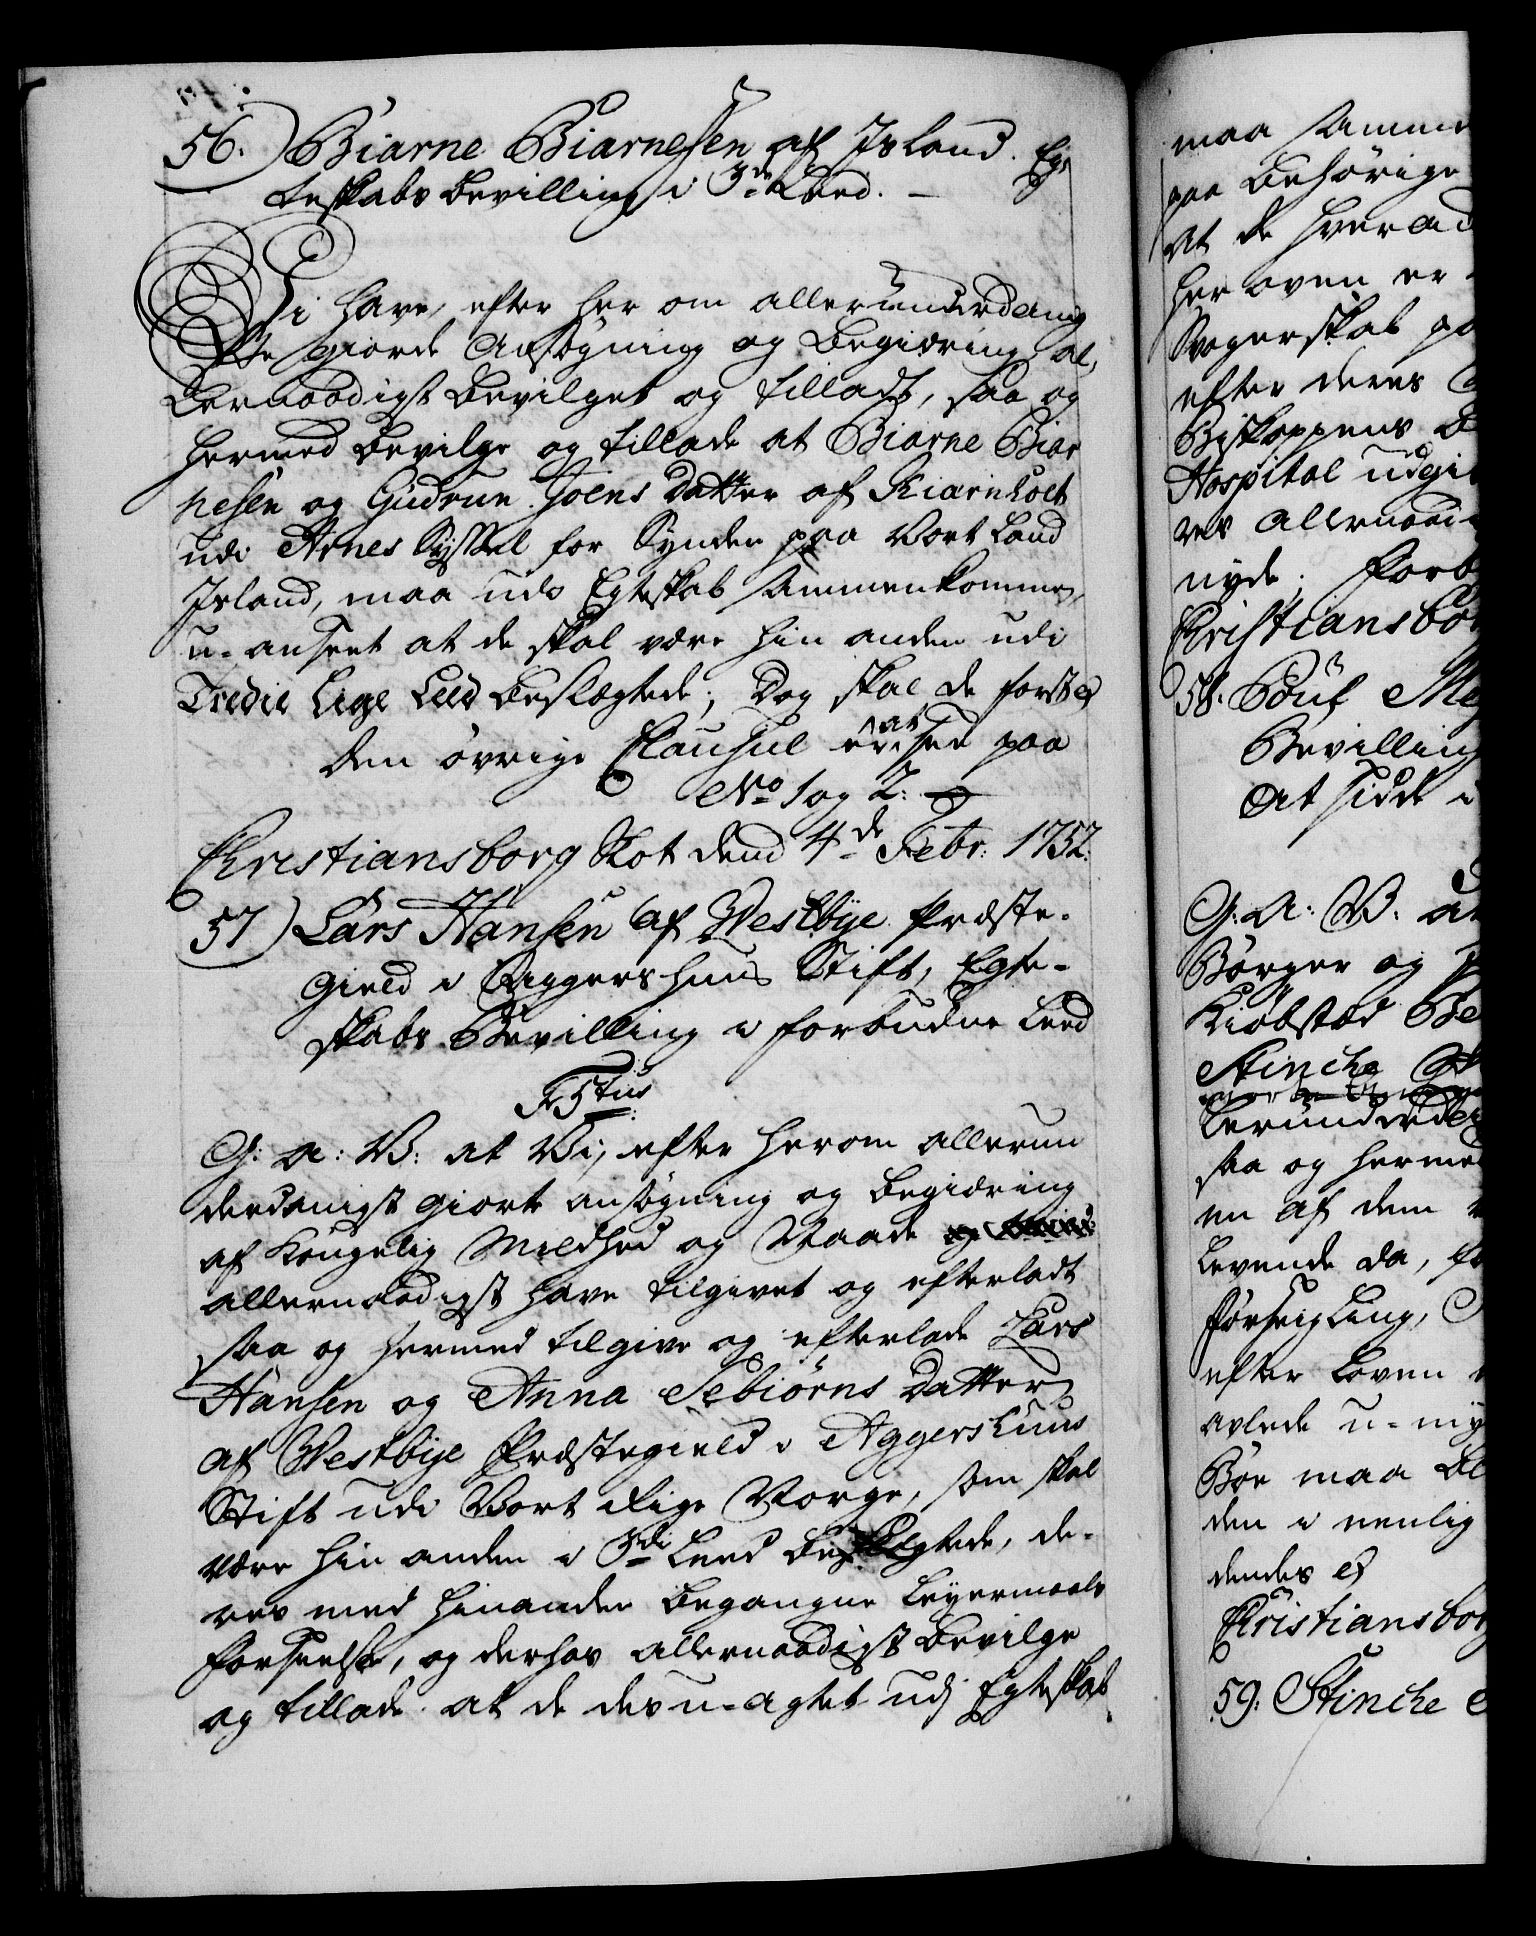 56.) Biarne Biarnesen af Island. Eg-
teskabs Bevilling i 3de Leed. –
Vi have, efter her om allerunderdanig
ste giorde Ansøgning og Begiæring al,
lernaadigst bevilget og tilladt, saa og
hermed bevilge og tillade at Biarne Biar
nesen og Gudrun Joens Datter af Kiarnholt
udi Arnes Syssel for Synden paa Vort Land
Island, maa udi Egteskab sammenkomme,
u-anseet at de skal være hin anden udi
Tredie Lige Leed beslægtede; Dog skal de først
den øvrige Clausul er at see paa
No 1 og 2:
Christiansborg Slot dend 4de Febr: 1752.
57) Lars Hansen af Westbye Præste-
gield i Aggershuus Stift, Egte-
skabs Bevilling i forbudne Leed
F 5tus
G: A: V: at Vi, efter herom allerun
derdanigst giort ansøgning og begiæring
af Kongelig Mildhed og Naade
allernaadigst have tilgivet og efterladt
saa og hermed tilgive og efterlade Lars
Hansen og Anna Sebiørns Datter
af Westbye Præstegield i Aggershuus
Stift udi Vort Rige Norge, som skal
være hin anden i 3die Leed beslægtede, de-
res med hinanden begangne Leyermaals
Forseelse, og derhos allernaadigst bevilge
og tillade at de des u-agtet udj Egteskab
maa samme
paa behørige
at de hverand
her oven er
Svogerskab pa
efter deres
Biskoppens B
Hospital udgi
res allernaad
nyde. Forb
Christiansbor
58. Poul Me
Bevilling
At sidde i
G: A: V: at
Borger og
Kiøbstad Be
Stinche
lerunderda
saa og herme
en af dem
levende da, fo
Forseigling,
efter Loven
avlede u-my
Bør maa bl
den i venlig
dendes
Christiansborg
59: Stinche